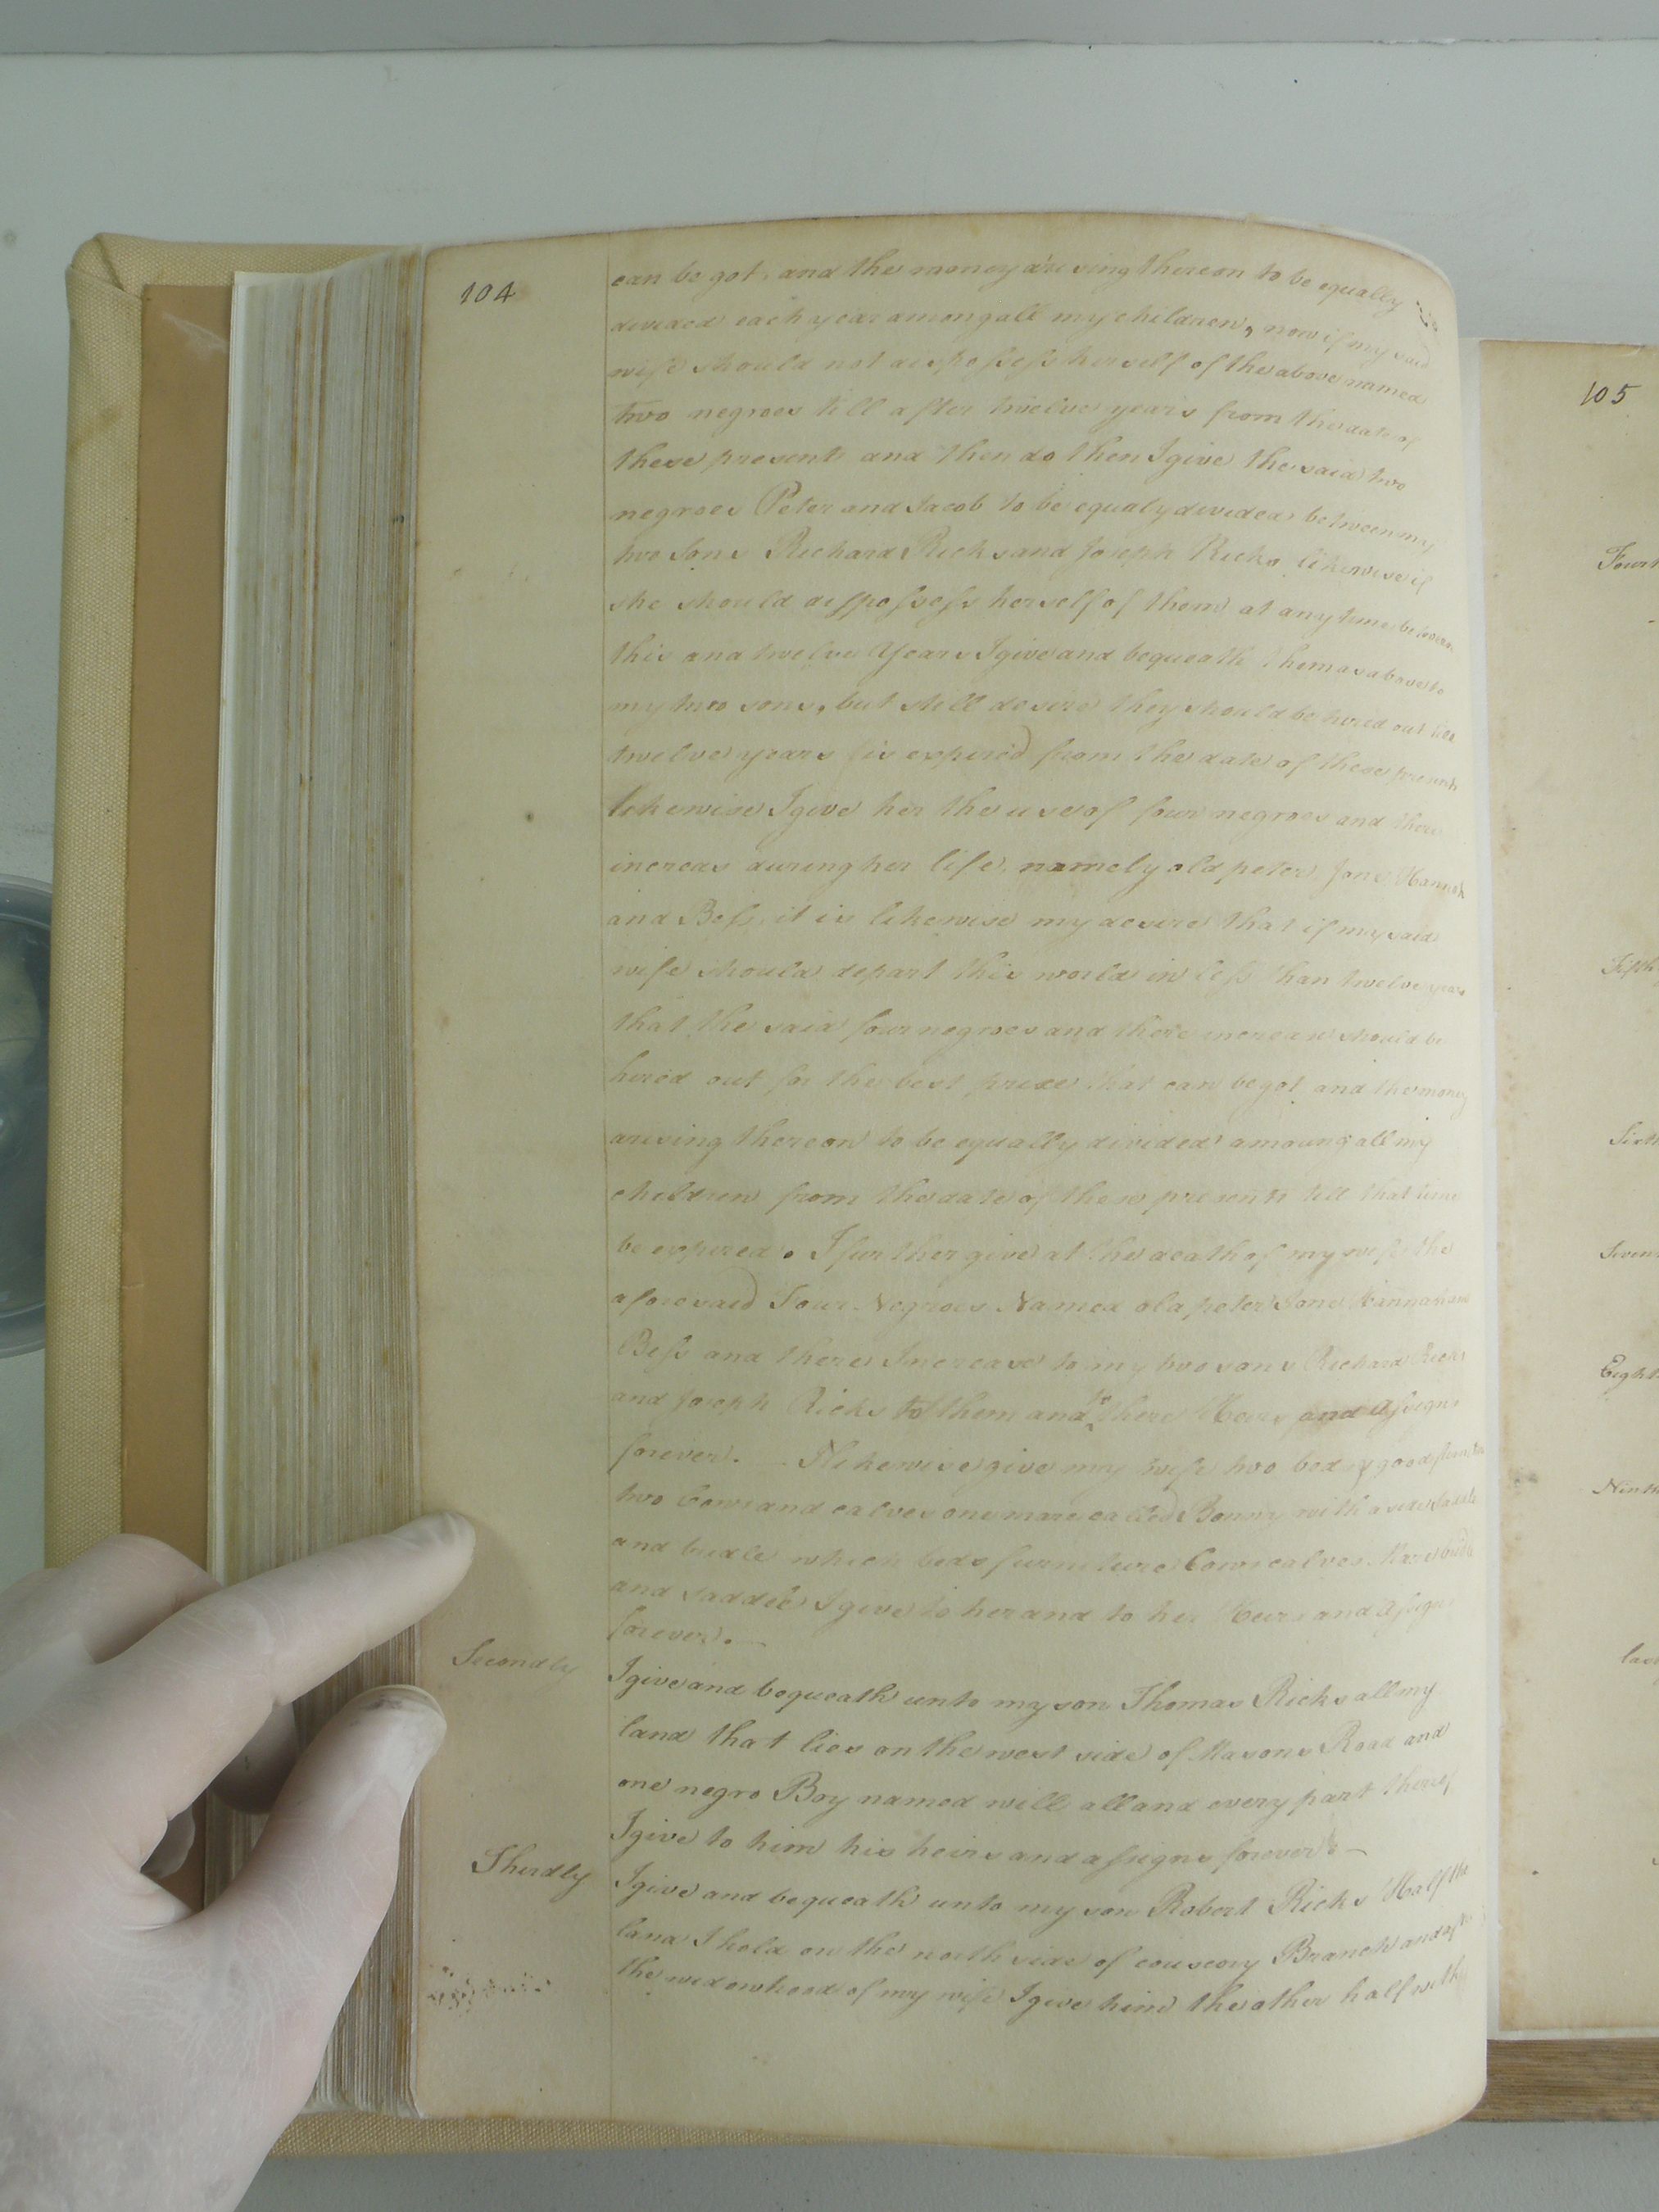 104
can be got, and the money areising thereon to be equally
devided each year among all my children, now if my said
wife should not disspossess herself of the above named
two negroes till after twelve years from the date of
these presents and then do then I give the said two
negroes Peter and Jacob to be equaly devided between my
two Sons Richard Ricks and Joseph Ricks likewise if
she should disspossess herself of them at any time between
this and twelve Years I give and bequeath them as above to
my two sons, but still desire they should be hired out till
twelve years is expired from the date of these presents
likewise I give her the use of four negroes and there
increas during her life, namely old peter, Jane, Hannah
and Bess, it is likewise my desire that if my said
wife should depart this world in less than twelve years
that the said four negroes and there increase should be
hired out for the best price that can be got and the money
areising thereon to be equally divided amoung all my
children from the date of these presents till that time
be expired. I further give at the death of my wife the
aforesaid Four Negroes Named old peter Jane Hannah and
Bess and there Increase to my two sons Richard Ricks
and Joseph Ricks to them and to there Heirs and Assigns
forever. I likewise give my wife two beds & good furniture
two Cows and calves one mare called Bonny with a side saddle
and bridle which beds furniture Cows calves Mare bridle
and saddle I give to her and to her Heirs and Assigns
forever.
Secondly
I give and bequeath unto my son Thomas Ricks all my
land that lies on the west side of Masons Road and
one negro Boy named will all and every part thereof
I give to him his heirs and assigns forever
Therdly
I give and bequeath unto my son Robert Ricks Half the
land I hold on the north side of Branch and
the widowhood of my wife I give him the other half
105
Ninth